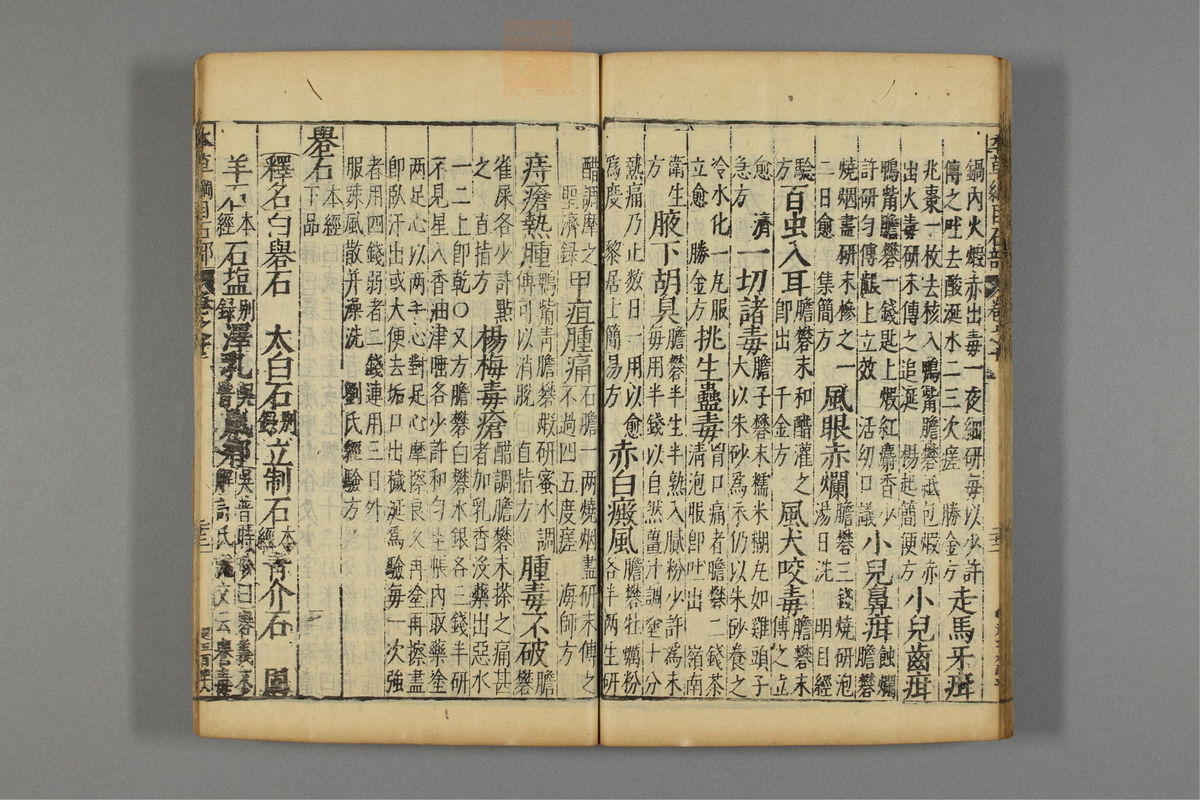 本草綱目石部 卷之十
鍋內火煅赤出毒一夜細研每以少許
傅之吐去酸涎水二三次瘥 勝金方 走馬牙疳
兆棗一枚去核入鴨觜膽礬紙包煅赤
出火毒研末傅之追涎 楊起簡便方 小兒齒疳
鴨觜膽礬一錢匙上煅紅麝香少
許研勻傅齦上立效 活幼口議 小兒鼻疳蝕爛膽礬
燒烟盡研末摻之一
二日愈 集簡方 風眼赤爛膽礬三錢燒研泡
湯日洗 明目經
驗
方 百虫入耳膽礬末和醋灌之
即出 千金方 風犬咬毒膽礬末
傅之立
愈 濟
急方 一切諸毒膽子礬末糯米糊丸如雞頭子
大以朱砂為衣仍以朱砂養之
冷水化一丸服
立愈 勝金方 挑生蠱毒胷口痛者膽礬二錢茶
清泡服即吐出 嶺南
衛生
方 腋下胡臭膽礬半生半熟入膩粉少許為末
每用半錢以自然薑汁調塗十分
熱痛乃止數日一用以愈
為度 黎居士簡易方 赤白癜風膽礬牡蠣粉
各半兩生研
醋調摩之
聖濟錄 甲疽腫痛石膽一兩燒烟盡研末傅之
不過四五度瘥 海師方
痔瘡熱腫鴨觜青膽礬煅研蜜水調
傅可以消脫 直指方 腫毒不破膽
礬
雀屎各少許點
之 直指方 楊梅毒瘡醋調膽礬末搽之痛甚
者加乳香沒藥出惡水
一二上即乾○又方膽礬白礬水銀各三錢半研
不見星入香油津唾各少許和勻坐帳內取藥塗
兩足心以兩手心對足心摩擦良久再塗再擦盡
即卧汗出或大便去垢口出穢涎為驗每一次強
者用四錢弱者二錢連用三日外
服疎風散并澡洗 劉氏經驗方
礜石本經
下品
釋名白礜石 太白石別錄 立制石本經 青介石
羊 本經 石鹽別錄 澤乳吳普
本草綱目石部 卷之十